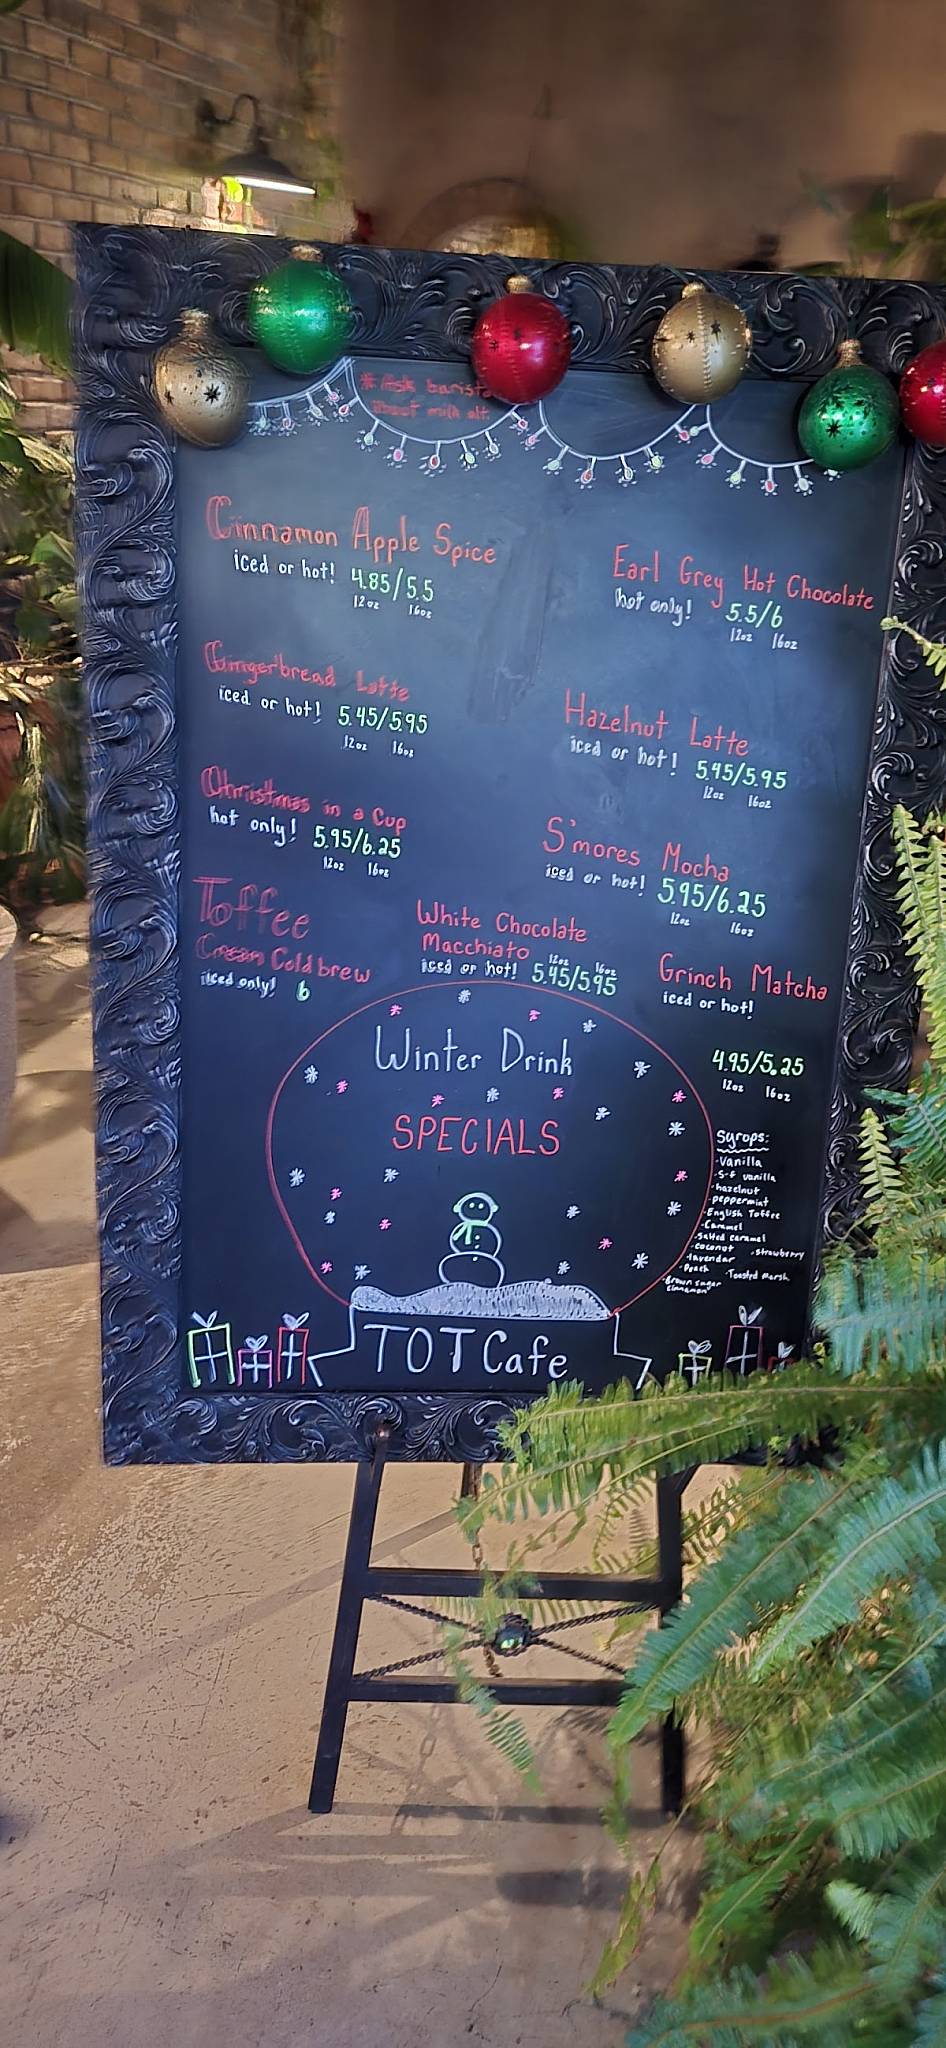 *Ask barista
about milk alt.
Cinnamon Apple Spice
iced or hot! 4.85/5.5
12oz 16oz
Gingerbread Latte
iced or hot! 5.45/5.95
12oz 16oz
Christmas in a Cup
hot only! 5.95/6.25
12oz 16oz
Toffee
Cream Cold brew
iced only! 6
Earl Grey Hot Chocolate
hot only! 5.5/6
12oz 16oz
Hazelnut Latte
iced or hot! 5.45/5.95
12oz 16oz
S'mores Mocha
iced or hot! 5.95/6.25
12oz 16oz
White Chocolate
Macchiato
12oz 16oz
iced or hot! 5.45/5.95
Grinch Matcha
iced or hot!
4.95/5.25
12oz 16oz
Winter Drink
SPECIALS
TOT Cafe
Syrops:
-Vanilla
-S-f vanilla
-hazelnut
-peppermint
-English Toffee
-Caramel
-Salted caramel
-coconut -strawberry
-lavendar
-Peach -Toasted Marsh.
-Brown sugar
cinnamon